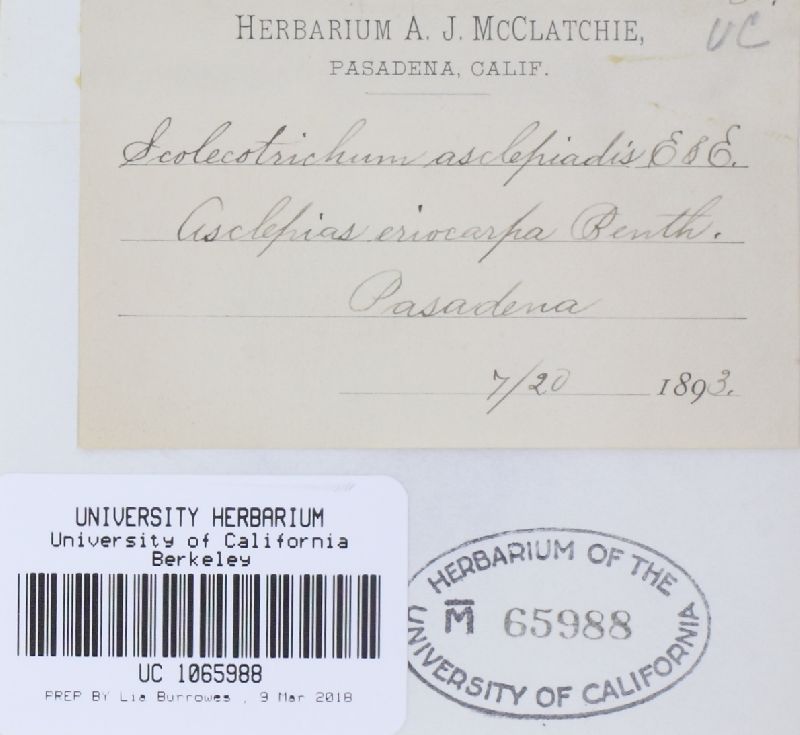 HERBARIUM A. J. MCCLATCHIE,
UC
PASADENA, CALIF.
Scolecotrichum asclepiadis E & E.
Asclepias eriocarpa Benth.
Pasadena
7/20 1893.
UNIVERSITY HERBARIUM
University of California
Berkeley
UC 1065988
PREP BY Lia Burrowes , 9 Mar 2018
HERBARIUM OF THE
M 65988
UNIVERSITY OF CALIFORNIA